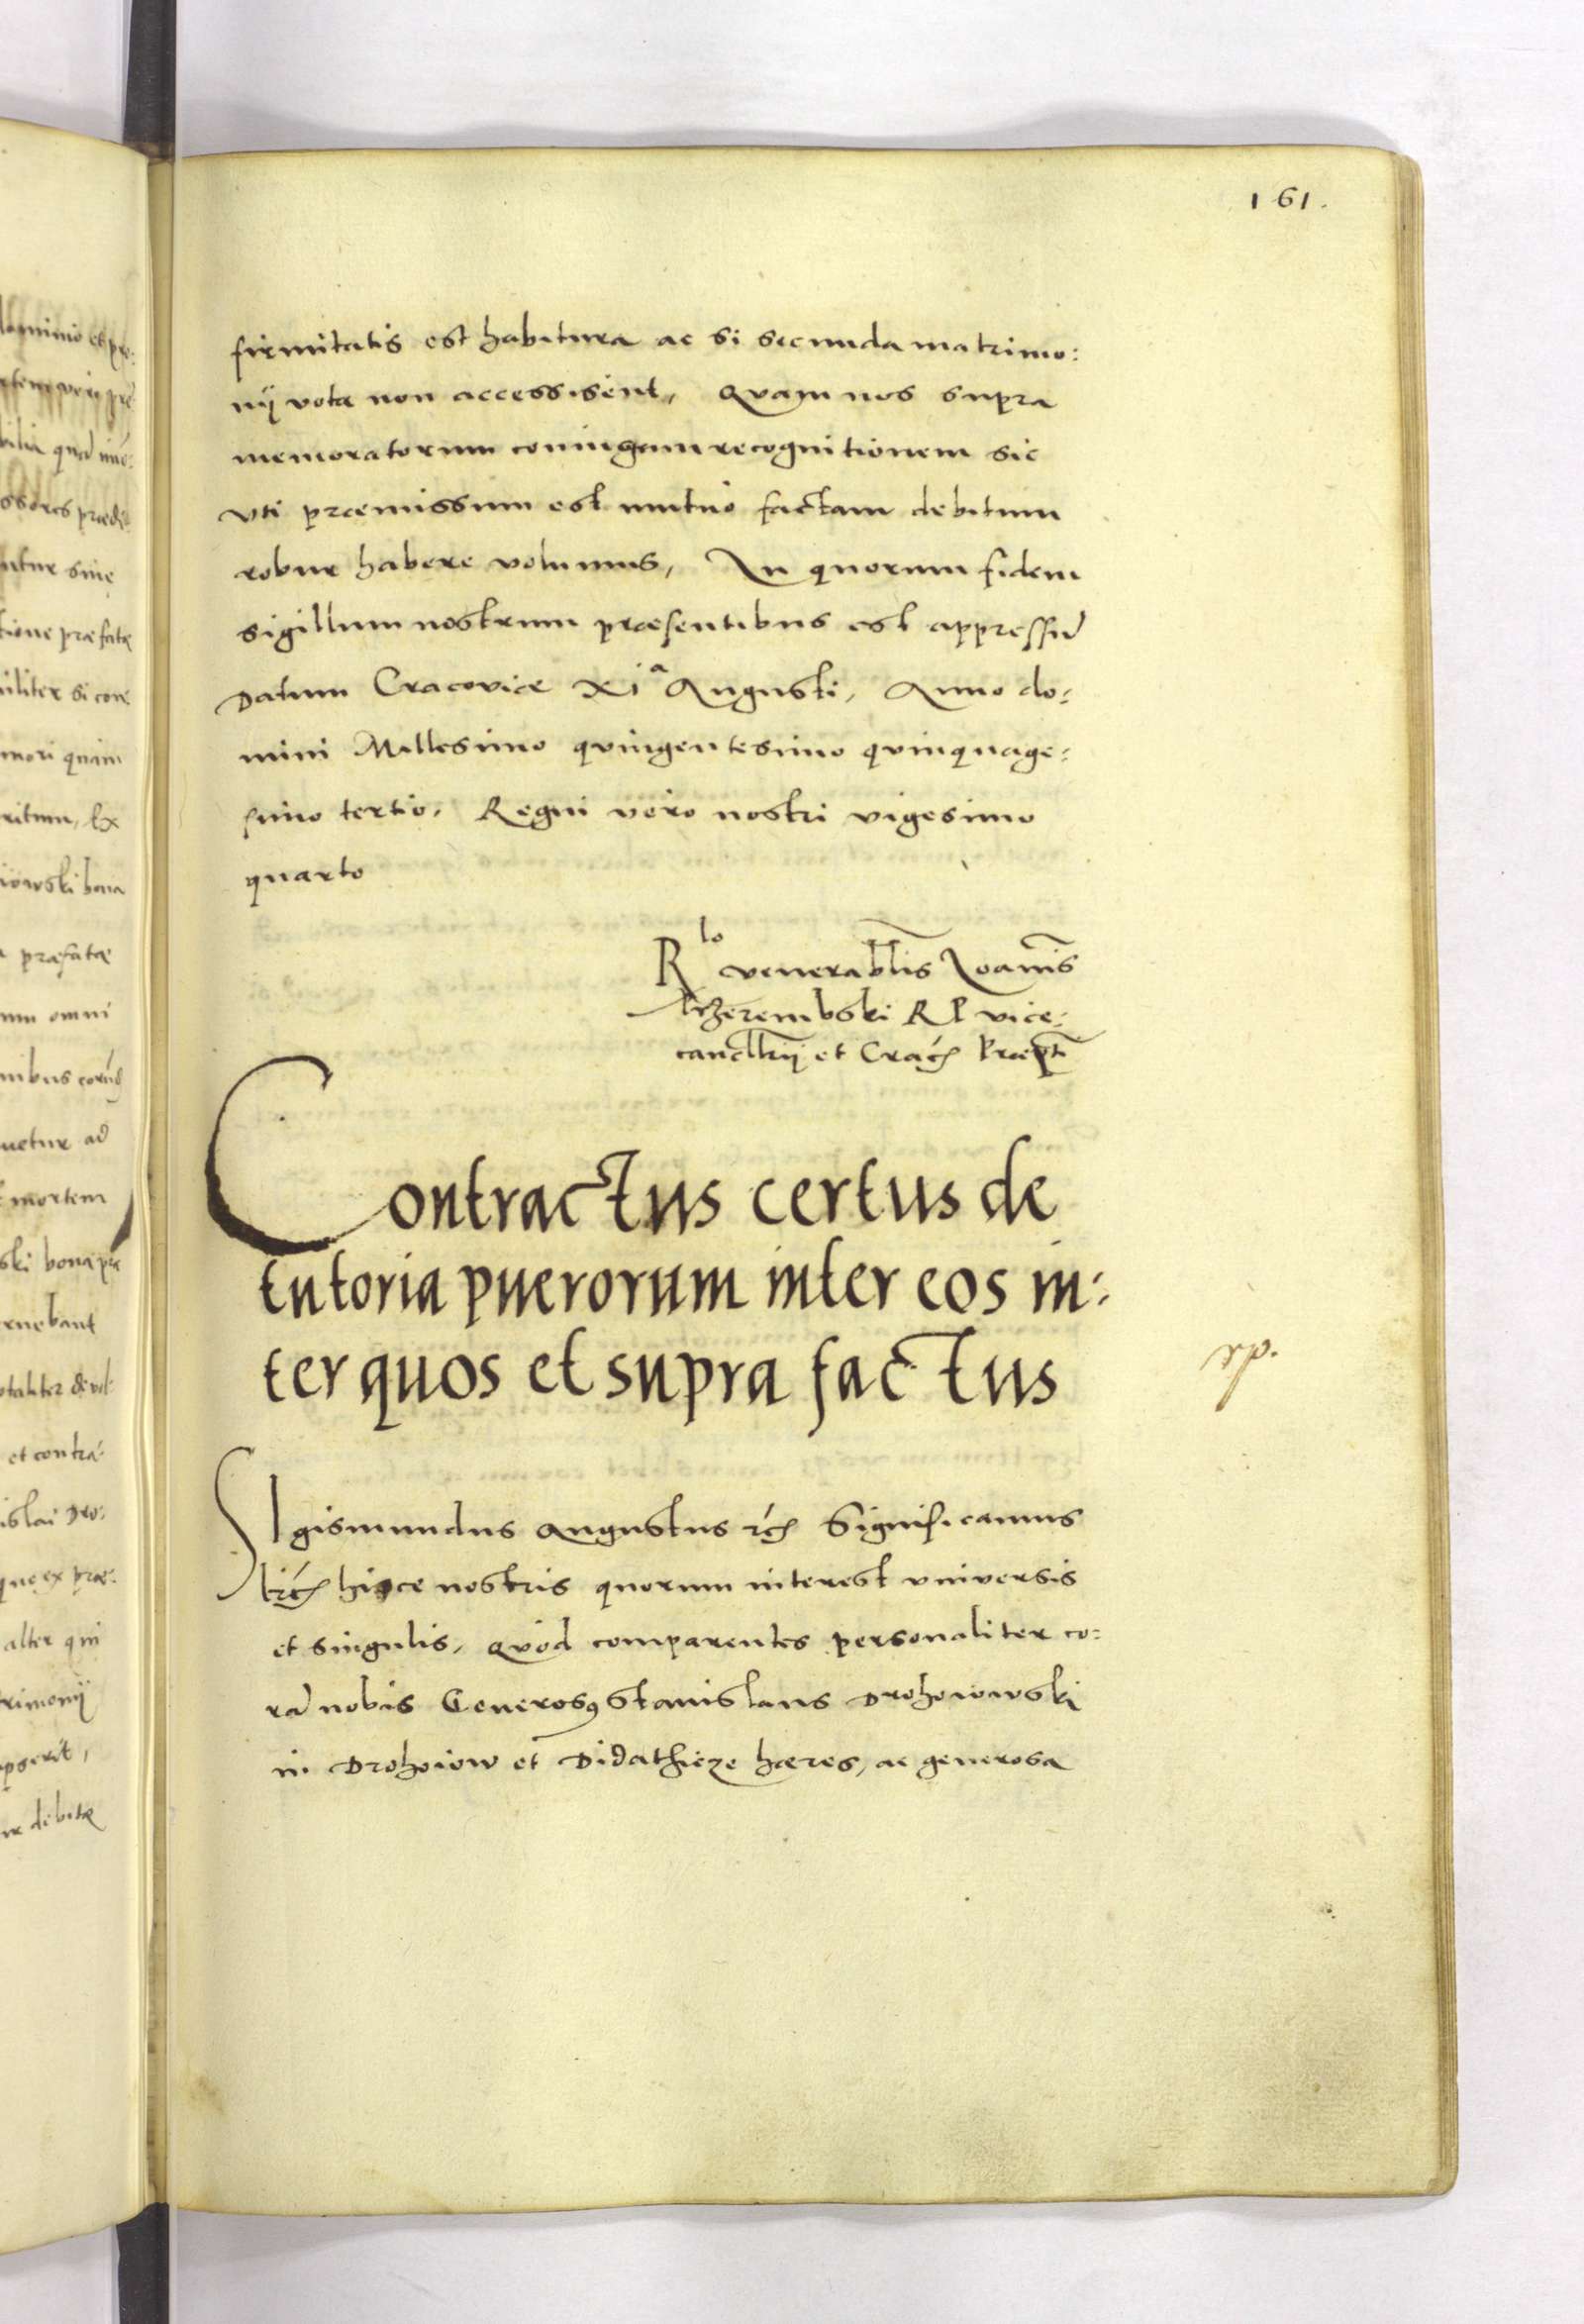 161.
firmitatis est habitura ac si secunda matrimo:
nij vota non accessissent, Quam nos supra
memoratorum coniugum recognitionem sic
vti præmissum est mutuo factam debitum
robur habere volumus, In quorum fidem
sigillum nostrum præsentibus est appressũ
Datum Cracoviæ XIᵃ Augusti, Anno do:
mini Millesimo quingentesimo quinquage:
simo tertio, Regni vero nostri vigesimo
quarto
Rˡᵒ venerabilis Ioannis
Przerembski R P vice:
cancellrij et Crac̃ Præpti
Contractus certus de
tutoria puerorum inter eos in:
ter quos et supra factus
rp.
SIgismundus Augustus rc̃ Significamus
lrc̃ hisce nostris quorum interest vniversis
et singulis, Quod comparentes personaliter co:
rã nobis Generosꝰ Stanislaus Drohoiowski
in Drohoiow et Didathicze hæres, ac generosa
dominio et
quam
ritum, Ex
iowski bona
præfatæ
omni
mortem
alter qui
debitæ